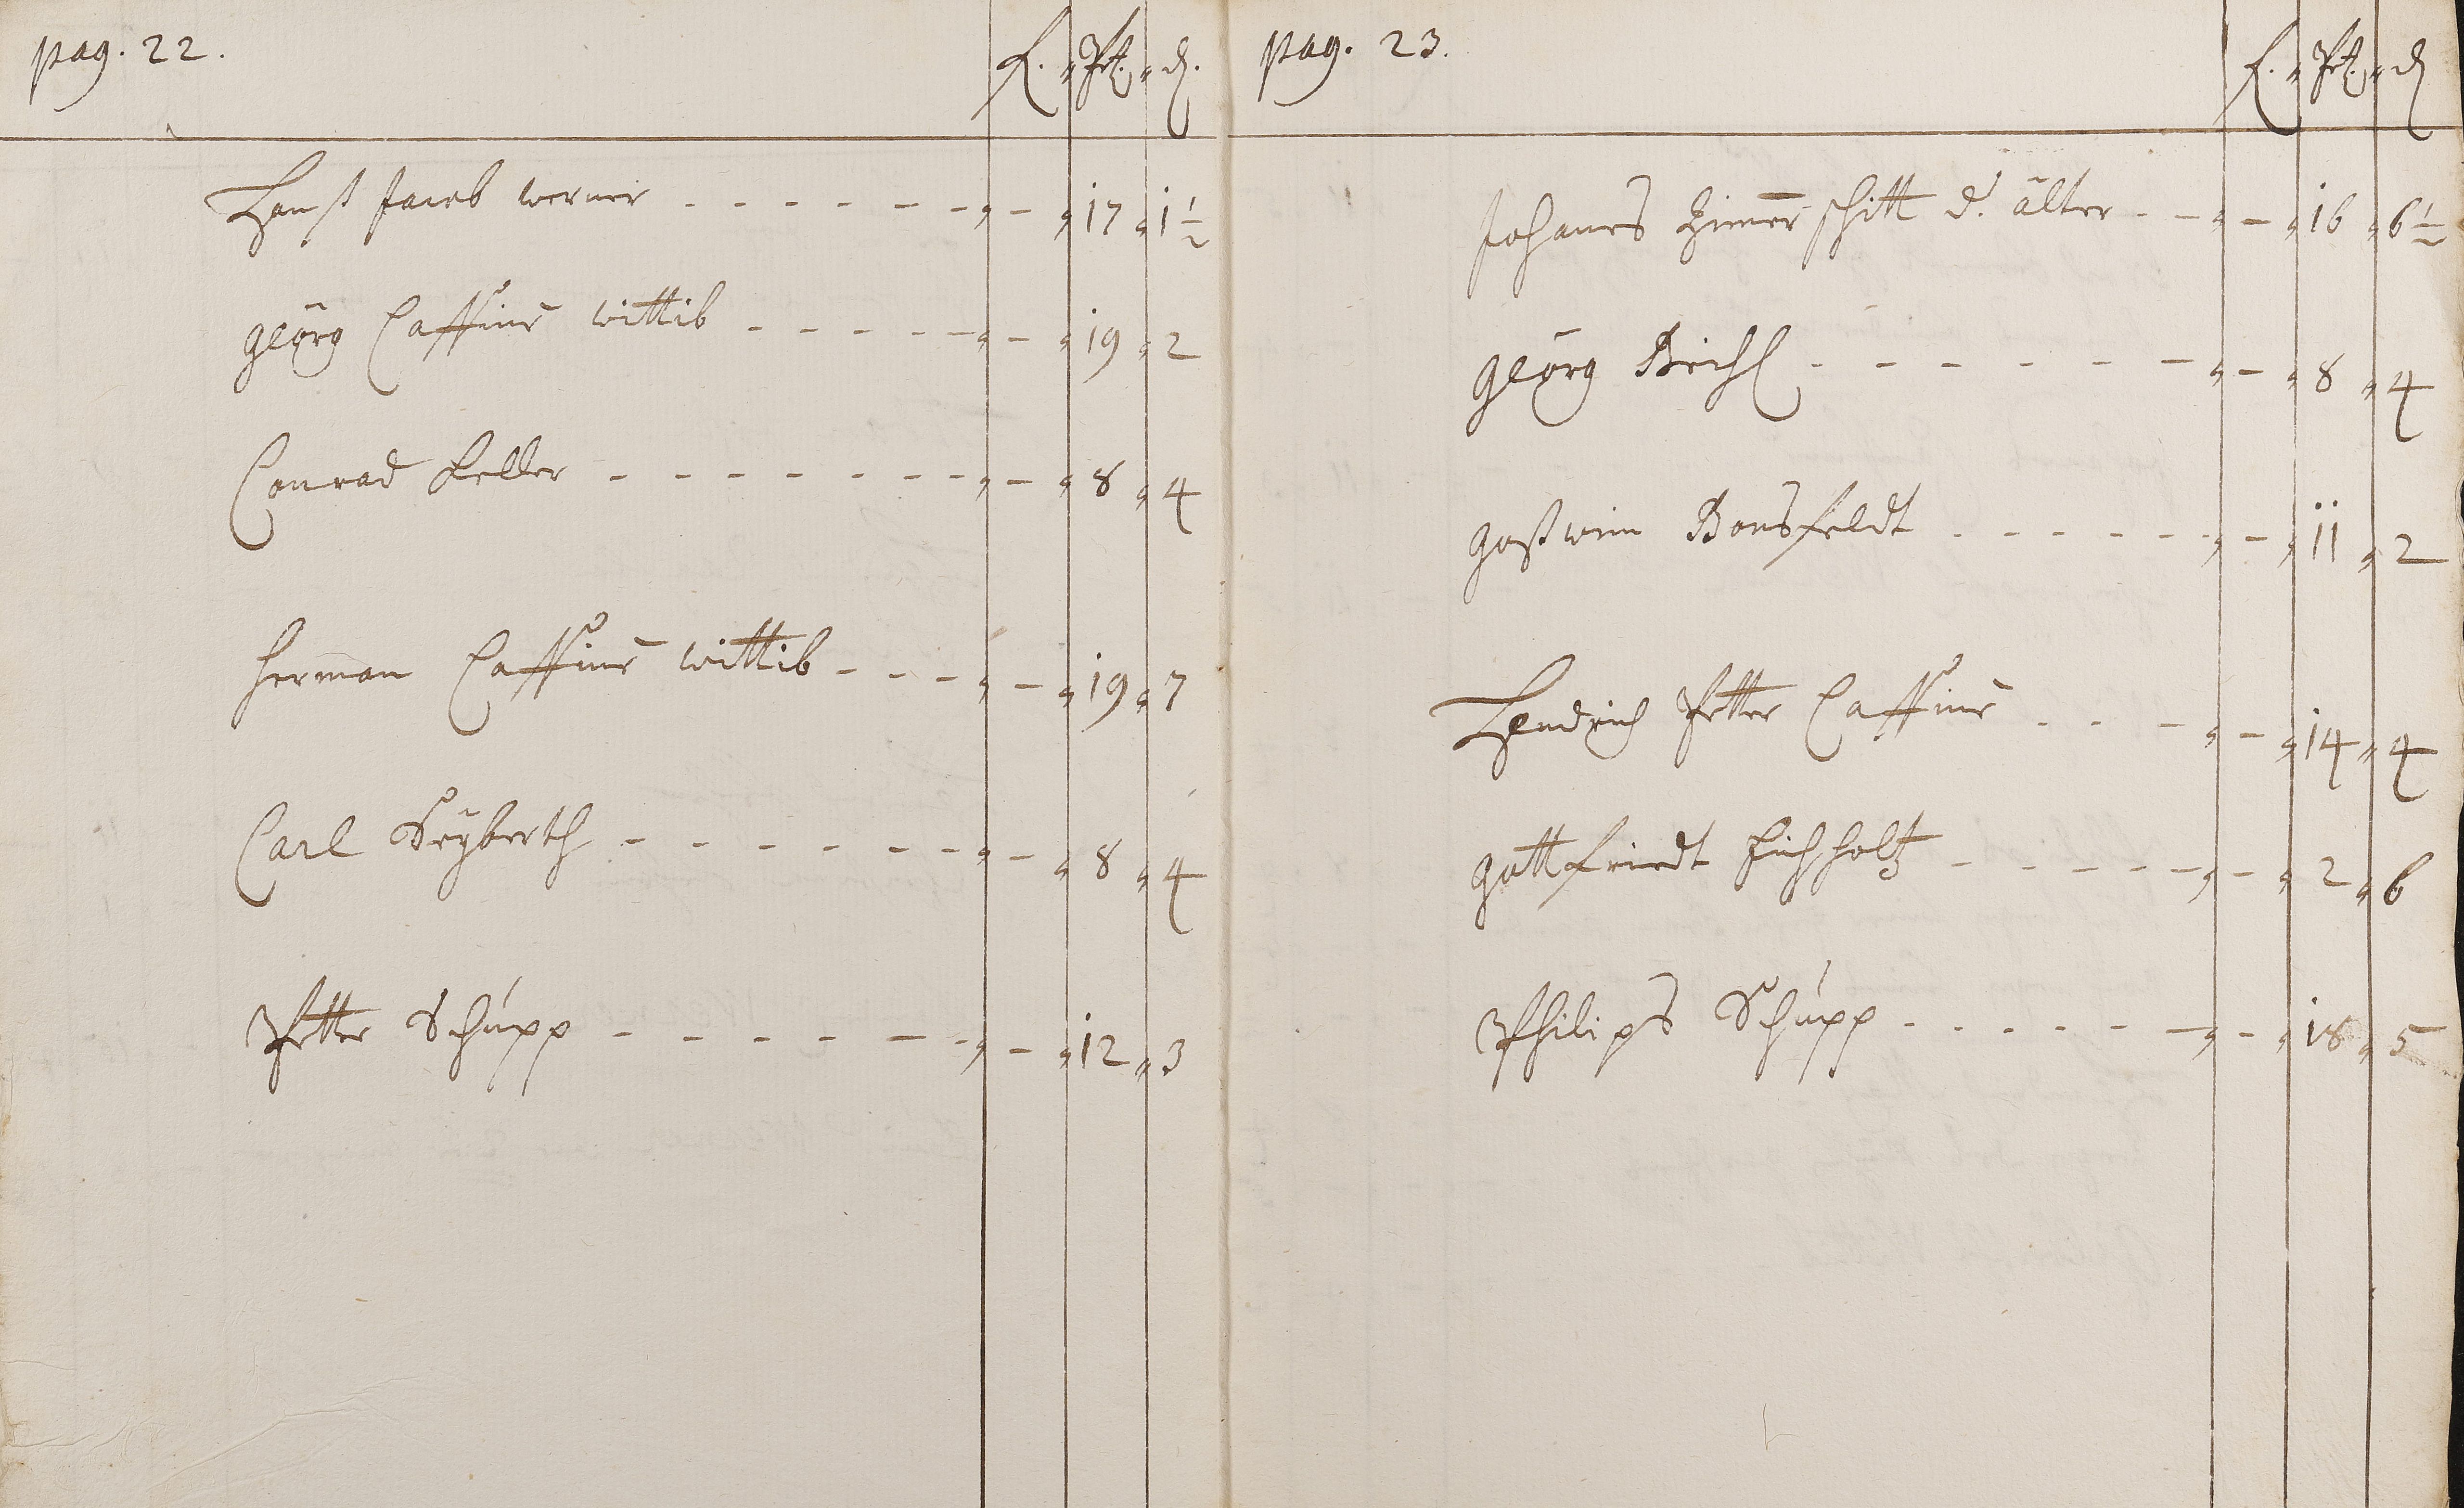 pag. 22.
f. xr. d.
Hanß Jacob werner - - - - - - - - 17 1½
Georg Cassinus wittib - - - - - - - 19 2
Conrad Keller - - - - - - - - 8 4
herman Cassinus wittib - - - - - 19 7
Carl Seyberth - - - - - - - - 8 4
Petter Schupp - - - - - - - - 12 3
pag. 23.
f. d
Johannes Zimmerschitt d. älter - - - - 16 6½
Georg - - - - - - - - 8 4
Goßwin Bonsfeldt - - - - - - - - 11 2
Hendrich Petter Cassinus - - - - - 14 4
Gottfriedt Eichholtz - - - - - - - 2 6
Philips Schupp - - - - - - - - 18 5